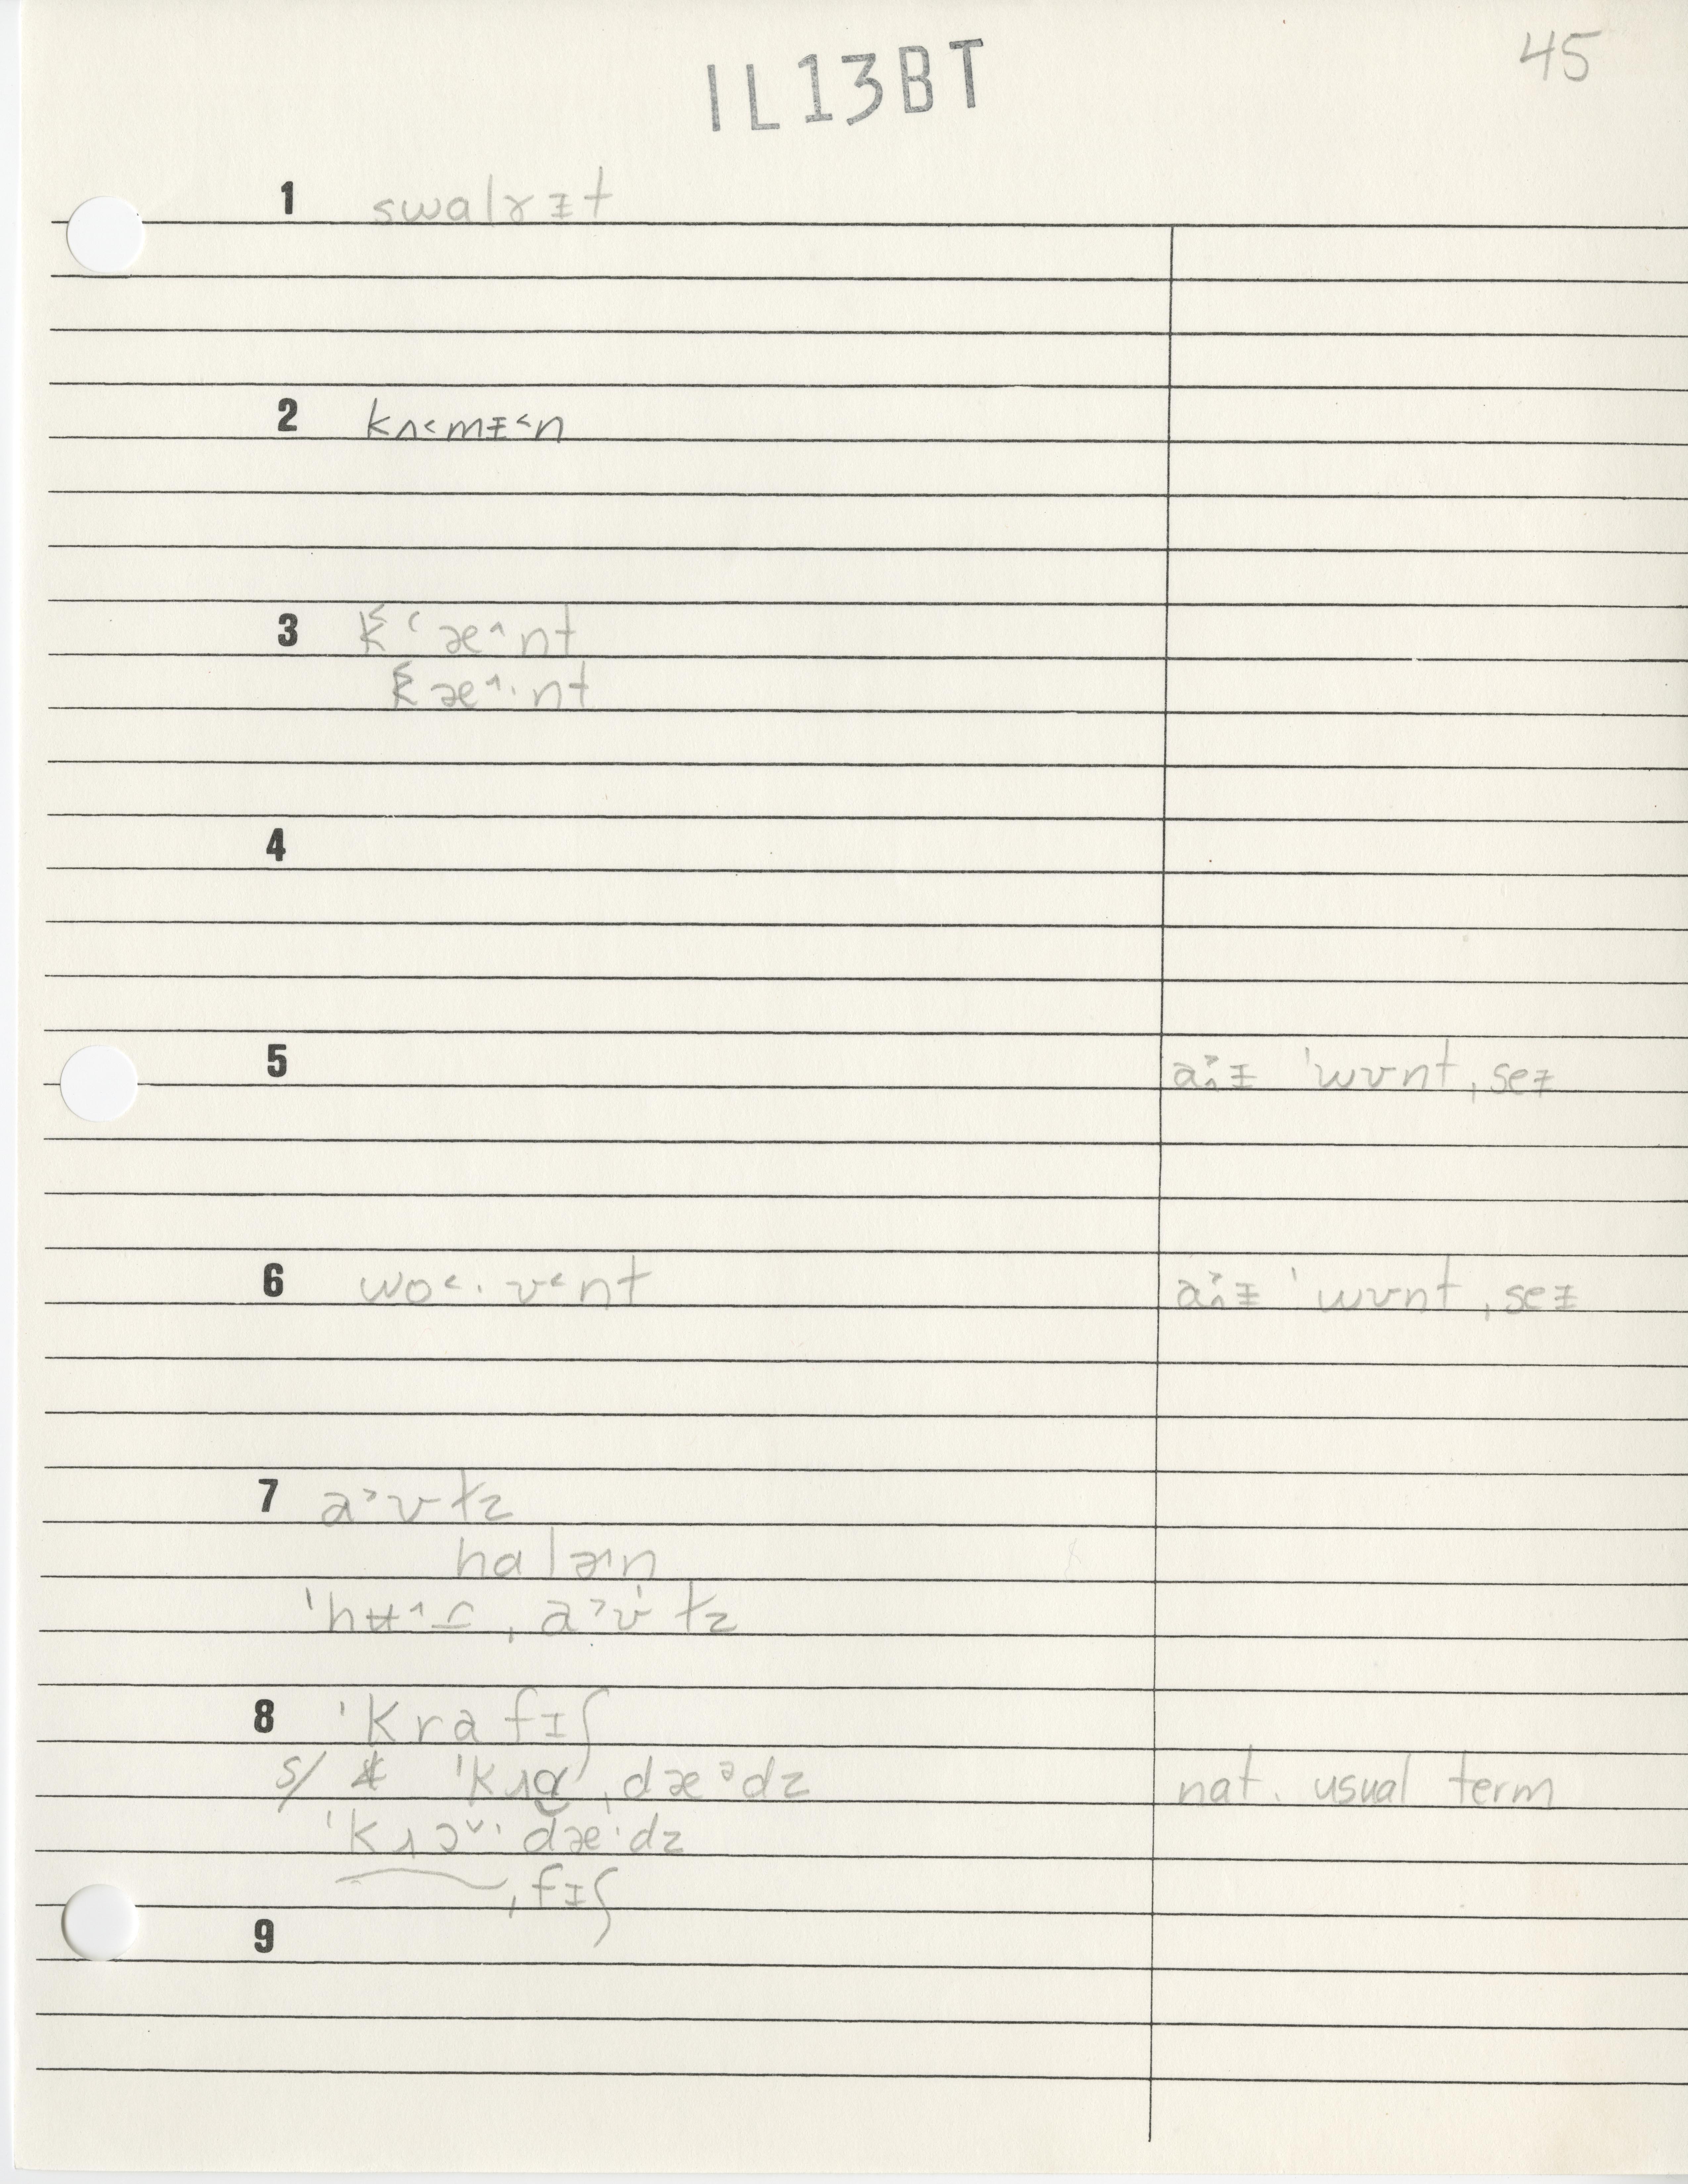 45
IL13BT
1 swalɤᵻt
2 kʌ˂mᵻ˂n
3 k̬ʻæ˄nt
k̬æ˄·nt
4
5 a˃ɪᵻ ˈwʊnt ˌseᵻ
6 wo˂·ʊ˂nt a˃ɪᵻ ˈwʊnt ˌseᵻ
7 a˃ʊtz
halə˄n
ˈhʉ˄ ˌa˃ʊtz
8 ˈkrafɪʃ
s/ * ˈkɹɑ ˌdæᵊdz nat. usual term
ˈkɹɔ˅· dæ·dz
ˌfɪʃ
9